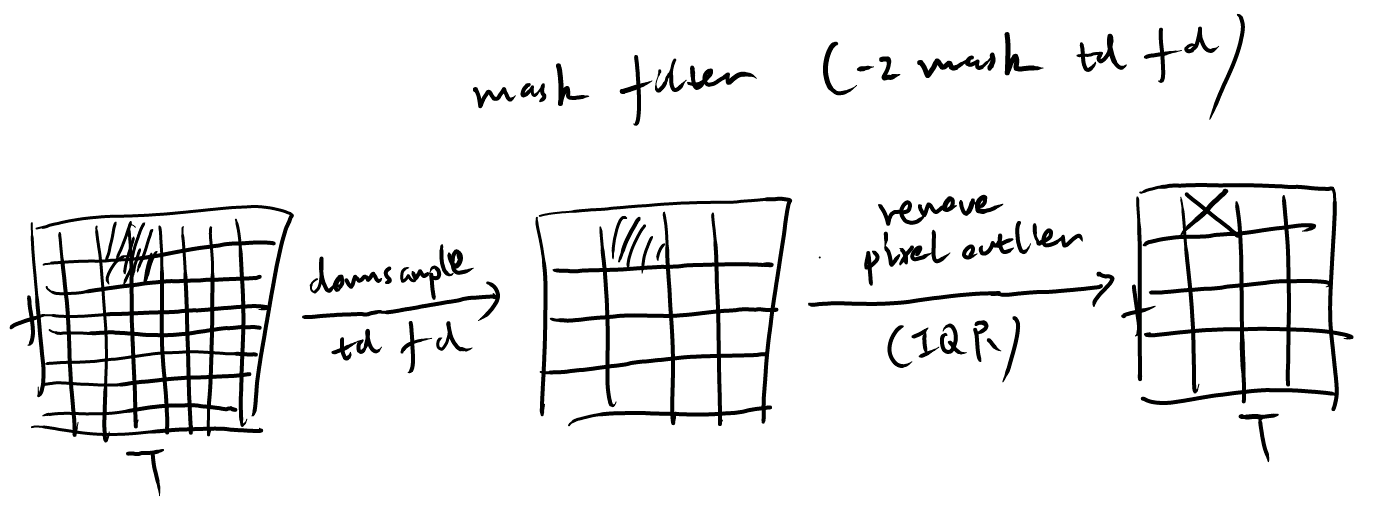 mask filter (-z mask td fd)
downsample
td fd
remove
pixel outlier
(IQR)
f
T
f
T